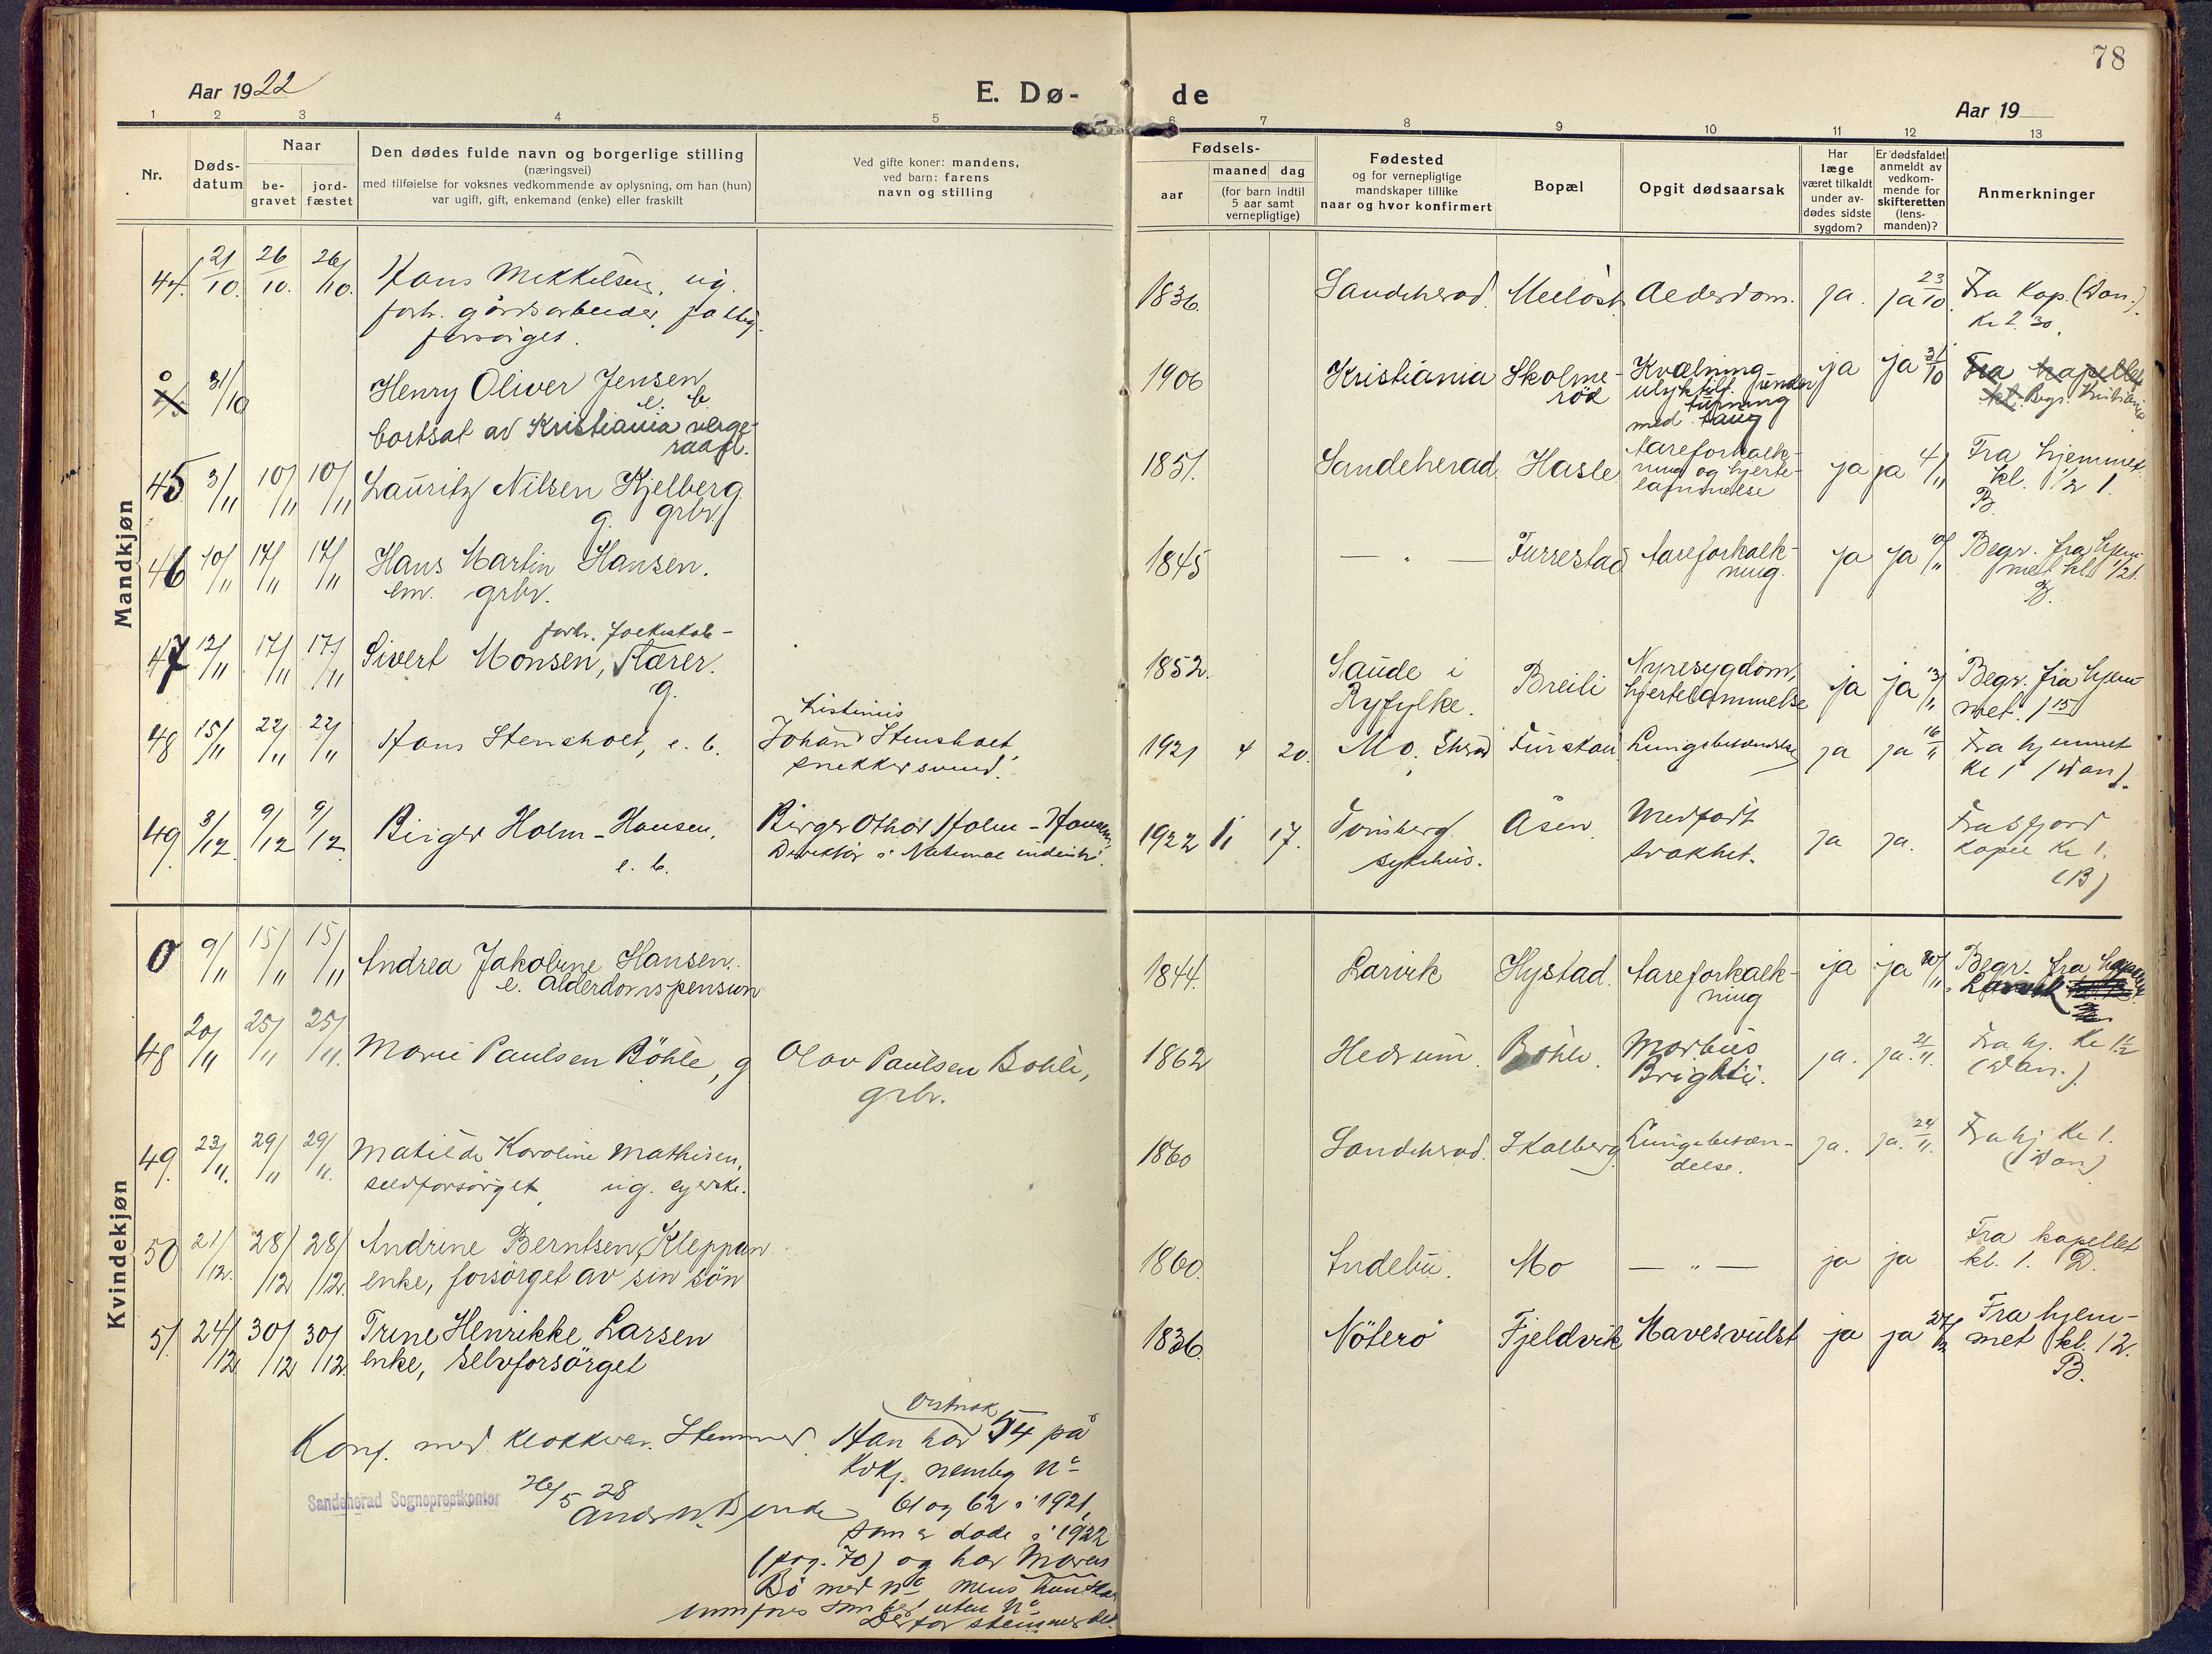 78
Aar 1922
E. Dø-
de
Aar 19
1 2 3 4 5 6 7 8 9 10 11 12 13
Nr.
Døds-
datum
Naar
be-
gravet
jord-
fæstet
Den dødes fulde navn og borgerlige stilling
(næringsvei)
med tilføielse for voksnes vedkommende av oplysning, om han (hun)
var ugift, gift, enkemand (enke) eller fraskilt
Ved gifte koner: mandens,
ved barn: farens
navn og stilling
Fødsels-
aar
maaned dag
(for barn indtil
5 aar samt
vernepligtige)
Fødested
og for vernepligtige
mandskaper tillike
naar og hvor konfirmert
Bopæl
Opgit dødsaarsak
Har
læge
været tilkaldt
under av-
dødes sidste
sygdom?
Er dødsfaldet
anmeldt av
vedkom-
mende for
skifteretten
(lens-
manden)?
Anmerkninger
Mandkjøn
44. 21/10. 26/10. 26/10. Hans Mikkelsen, ug.
forh. gårdsarbeider, fattig-
forsörget.
1836. Sandeherad. Alderdom. ja. ja 23/10. Fra Kap. (Dan.)
Kl 2.30.
0 31/10 Henry Oliver Jensen
e. b.
bortsat av Kristiania verge-
raad.
1906 Kristiania Skolme-
röd Kvælning
under
turning
med taug
ja ja 31/10 Fra kapellet
kl. Begr. Kristiania
45 3/11 10/11 10/11 Lauritz Nilsen Kjelberg
g. grbr.
1851. Sandeherad Hasle Aareforkalk-
ning og hjerte-
lammelse
ja ja 4/11 Fra hjemmet
kl. 1/2 1.
B.
46 10/11 17/11 17/11 Hans Martin Hansen.
em. grbr.
1845 — " — Furrestad Aareforkalk-
ning.
ja ja Begr. fra hjem-
met kl. 1/2 1.
B.
47 12/11 17/11 17/11 forh. folkeskole-
Sivert Monsen, lærer.
g.
1852. Saude i
Ryfylke. Breili Nyresygdom,
hjertelammelse ja ja 13/11 Begr. fra hjem-
met. 1 15
48 15/11 22/11 22/11 Hans Stensholt, e. b.
Kristinius
Johan Stensholt,
snekkersvend.
1921 4 20. Mo. Shrd Lungebetændelse ja ja 16/11 Fra hjemmet
Kl 1 (Dan).
49. 3/12. 9/12 9/12. Birger Holm-Hansen,
e. b.
Birger Othar Holm-Hansen,
Direktör i National industri.
1922 11 17. Tönsberg
sykehus. Åsen. Medfödt
svakhet. ja ja. Fra Sfjord
Kapel Kl 1.
(B)
Kvindekjøn
0 9/11 15/11 15/11 Andrea Jakobine Hansen.
e. Alderdomspension
1844. Larvik Hystad. Aareforkalk-
ning ja ja Begr. fra kapellet
Larvik
48 20/11 25/11 25/11. Marie Paulsen Böhle, g
Olav Paulsen Bohle,
grbr.
1862 Hedrum. Böhle. Morbus
Brightii. ja. ja. 21/11. Fra hj. Kl 1 1/2
(Dan.)
49. 23/11. 29/11 29/11. Matilde Karoline Mathisen,
selvforsörget, ug. eierske.
1860 Sandeherad. Skalberg. Lungebetæn-
delse. ja. ja. 24/11. Fra hj. Kl 1.
(Dan)
50 21/12. 28/12 28/12. Andrine Berntsen, Kleppan
enke, forsörget av sin sön
1860. Andebu. Mo — " — ja ja Fra kapellet
kl. 1. D.
51. 24/12. 30/12 30/12. Trine Henrikke Larsen
enke, selvforsörget
1836. Nöterö Fjeldvik Mavesvulst ja ja 27/12 Fra hjem-
met kl. 12.
B.
Konf. med klokkeren. Stemmer.
26/5 28
Sandeherad Sogneprestkontor
vistnok
Han har 54 på
Kvkj. nemlig No
61 og 62 i 1921,
som er döde i 1922
(pag. 70) og har Maren
Bö med No mens hun skal
innföres som her uten No
Derfor stemmer det.